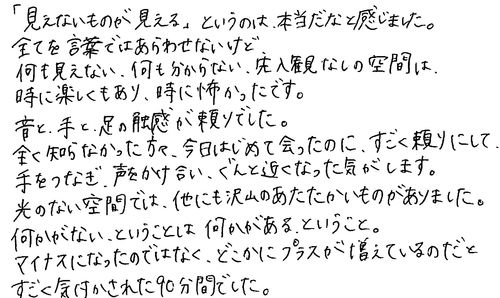 「見えないものが見える」というのは、本当だなと感じました。
全てを言葉ではあらわせないけど、
何も見えない、何も分からない、先入観なしの空間は、
時に楽しくもあり、時に怖かったです。
音と、手と、足の触感が頼りでした。
全く知らなかった方々、今日はじめて会ったのに、すごく頼りにして、
手をつなぎ、声をかけ合い、ぐんと近くなった気がします。
光のない空間では、他にも沢山のあたたかいものがありました。
何かがない、ということは 何かがある、ということ。
マイナスになったのではなく、どこかにプラスが増えているのだと
すごく気付かされた90分間でした。